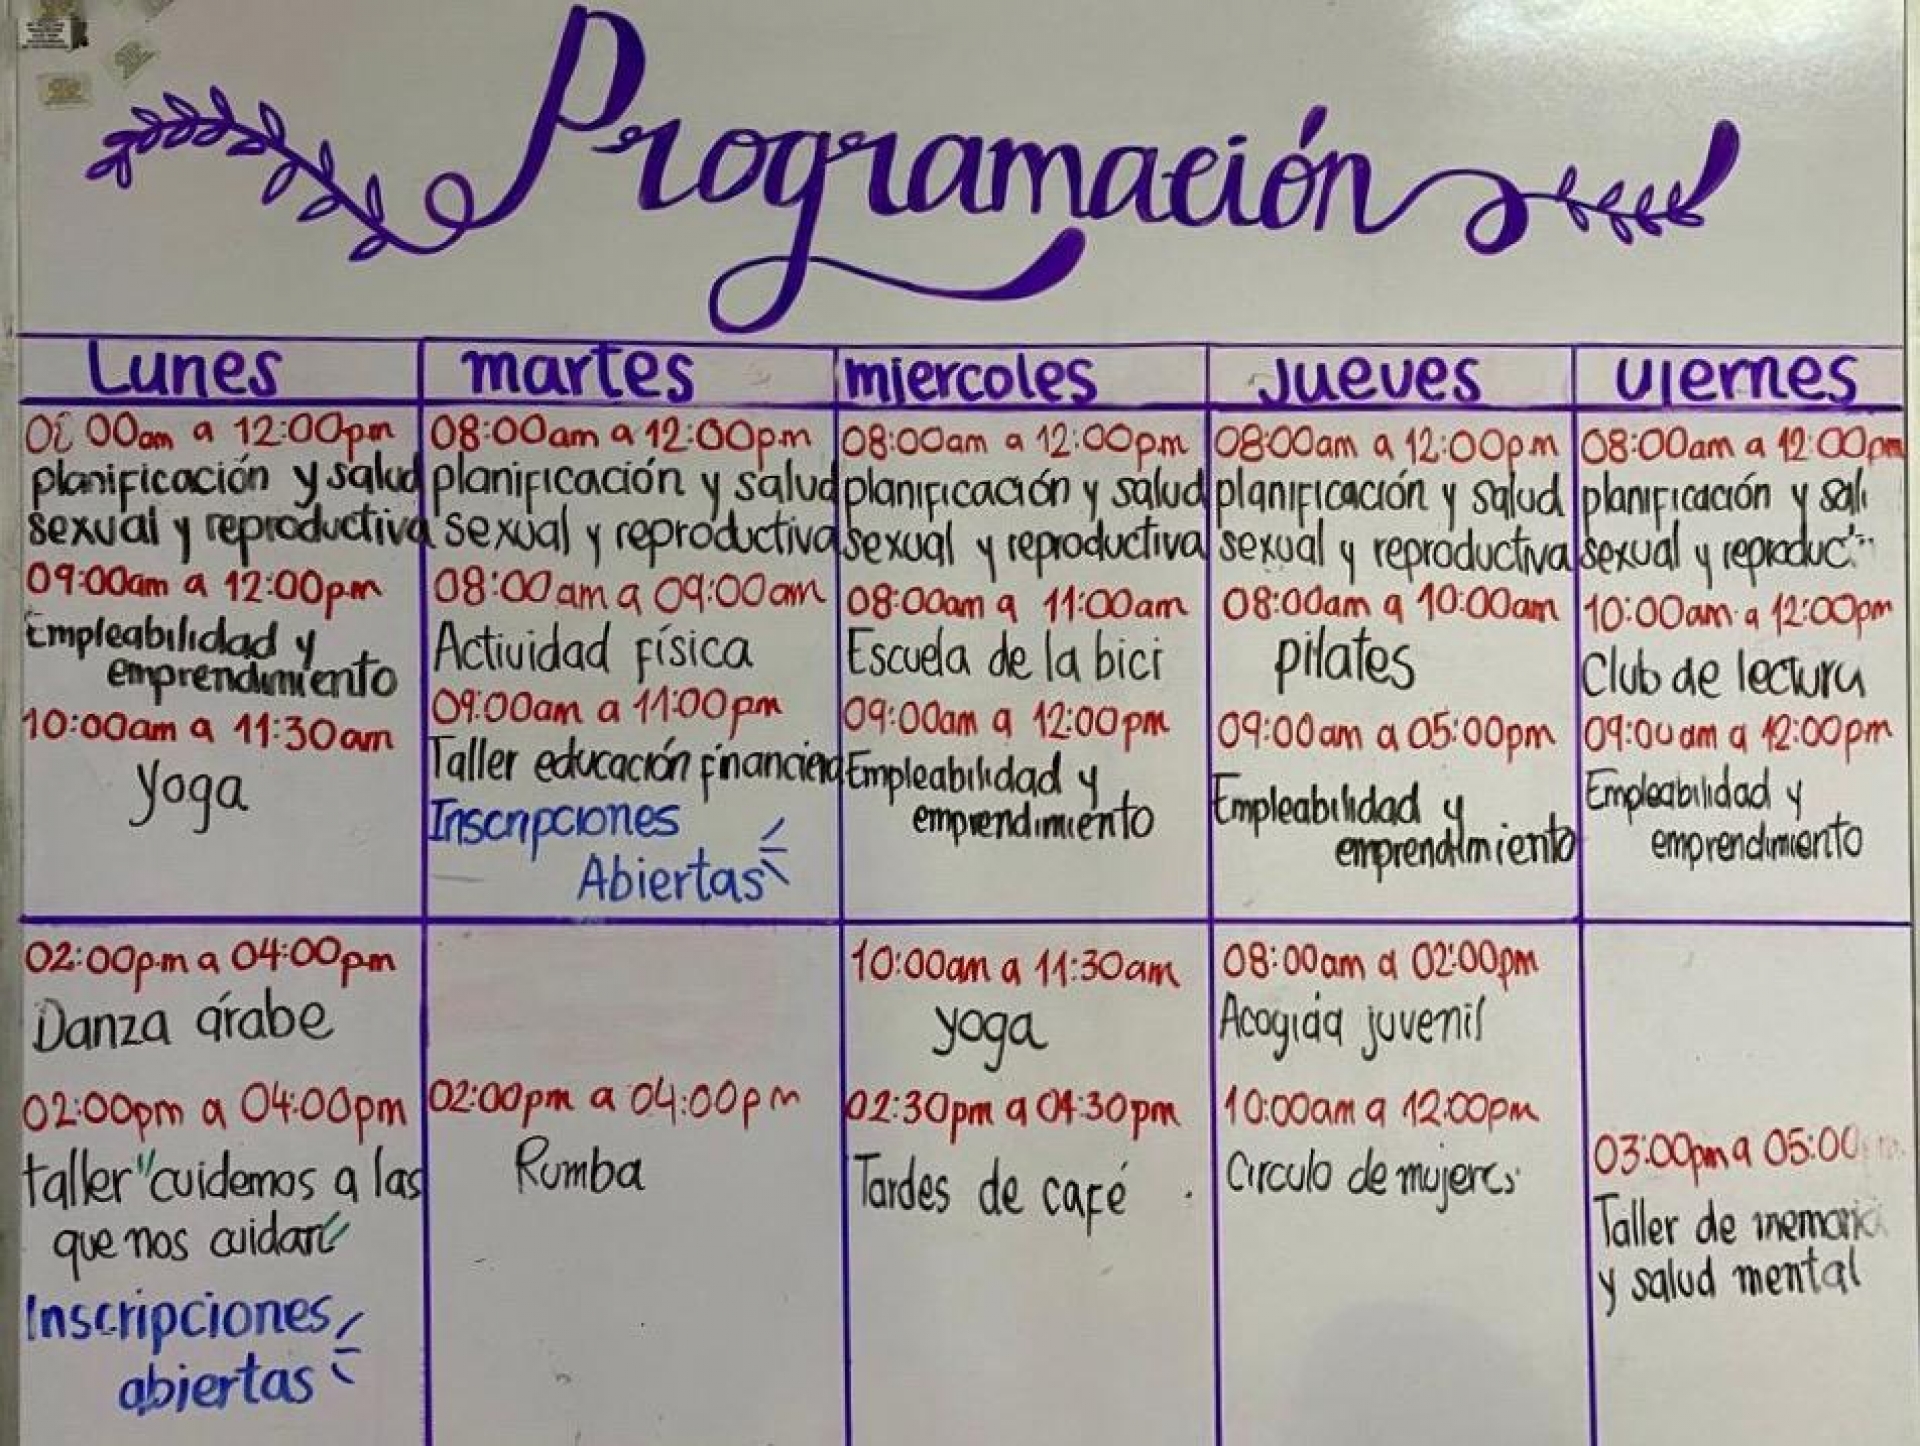 Programación
Lunes
08:00am a 12:00pm
planificación y salud
sexual y reproductiva
09:00am a 12:00pm
Empleabilidad y
emprendimiento
10:00am a 11:30am
Yoga
02:00pm a 04:00pm
Danza árabe
02:00pm a 04:00pm
taller "cuidemos a las
que nos cuidan"
Inscripciones
abiertas
martes
08:00am a 12:00pm
planificación y salud
sexual y reproductiva
08:00am a 09:00am
Actividad física
09:00am a 11:00pm
Taller educación financiera
Inscripciones
Abiertas
02:00pm a 04:00pm
Rumba
miercoles
08:00am a 12:00pm
planificación y salud
sexual y reproductiva
08:00am a 11:00am
Escuela de la bici
09:00am a 12:00pm
Empleabilidad y
emprendimiento
10:00am a 11:30am
yoga
02:30pm a 04:30pm
Tardes de café
Jueves
08:00am a 12:00pm
planificación y salud
sexual y reproductiva
08:00am a 10:00am
pilates
09:00am a 05:00pm
Empleabilidad y
emprendimiento
08:00am a 02:00pm
Acogida juvenil
10:00am a 12:00pm
Circulo de mujeres
viernes
08:00am a 12:00pm
planificación y
sexual y
10:00am a 12:00pm
Club de lectura
09:00am a 12:00pm
Empleabilidad y
emprendimiento
03:00pm a 05:00
Taller de memoria
y salud mental